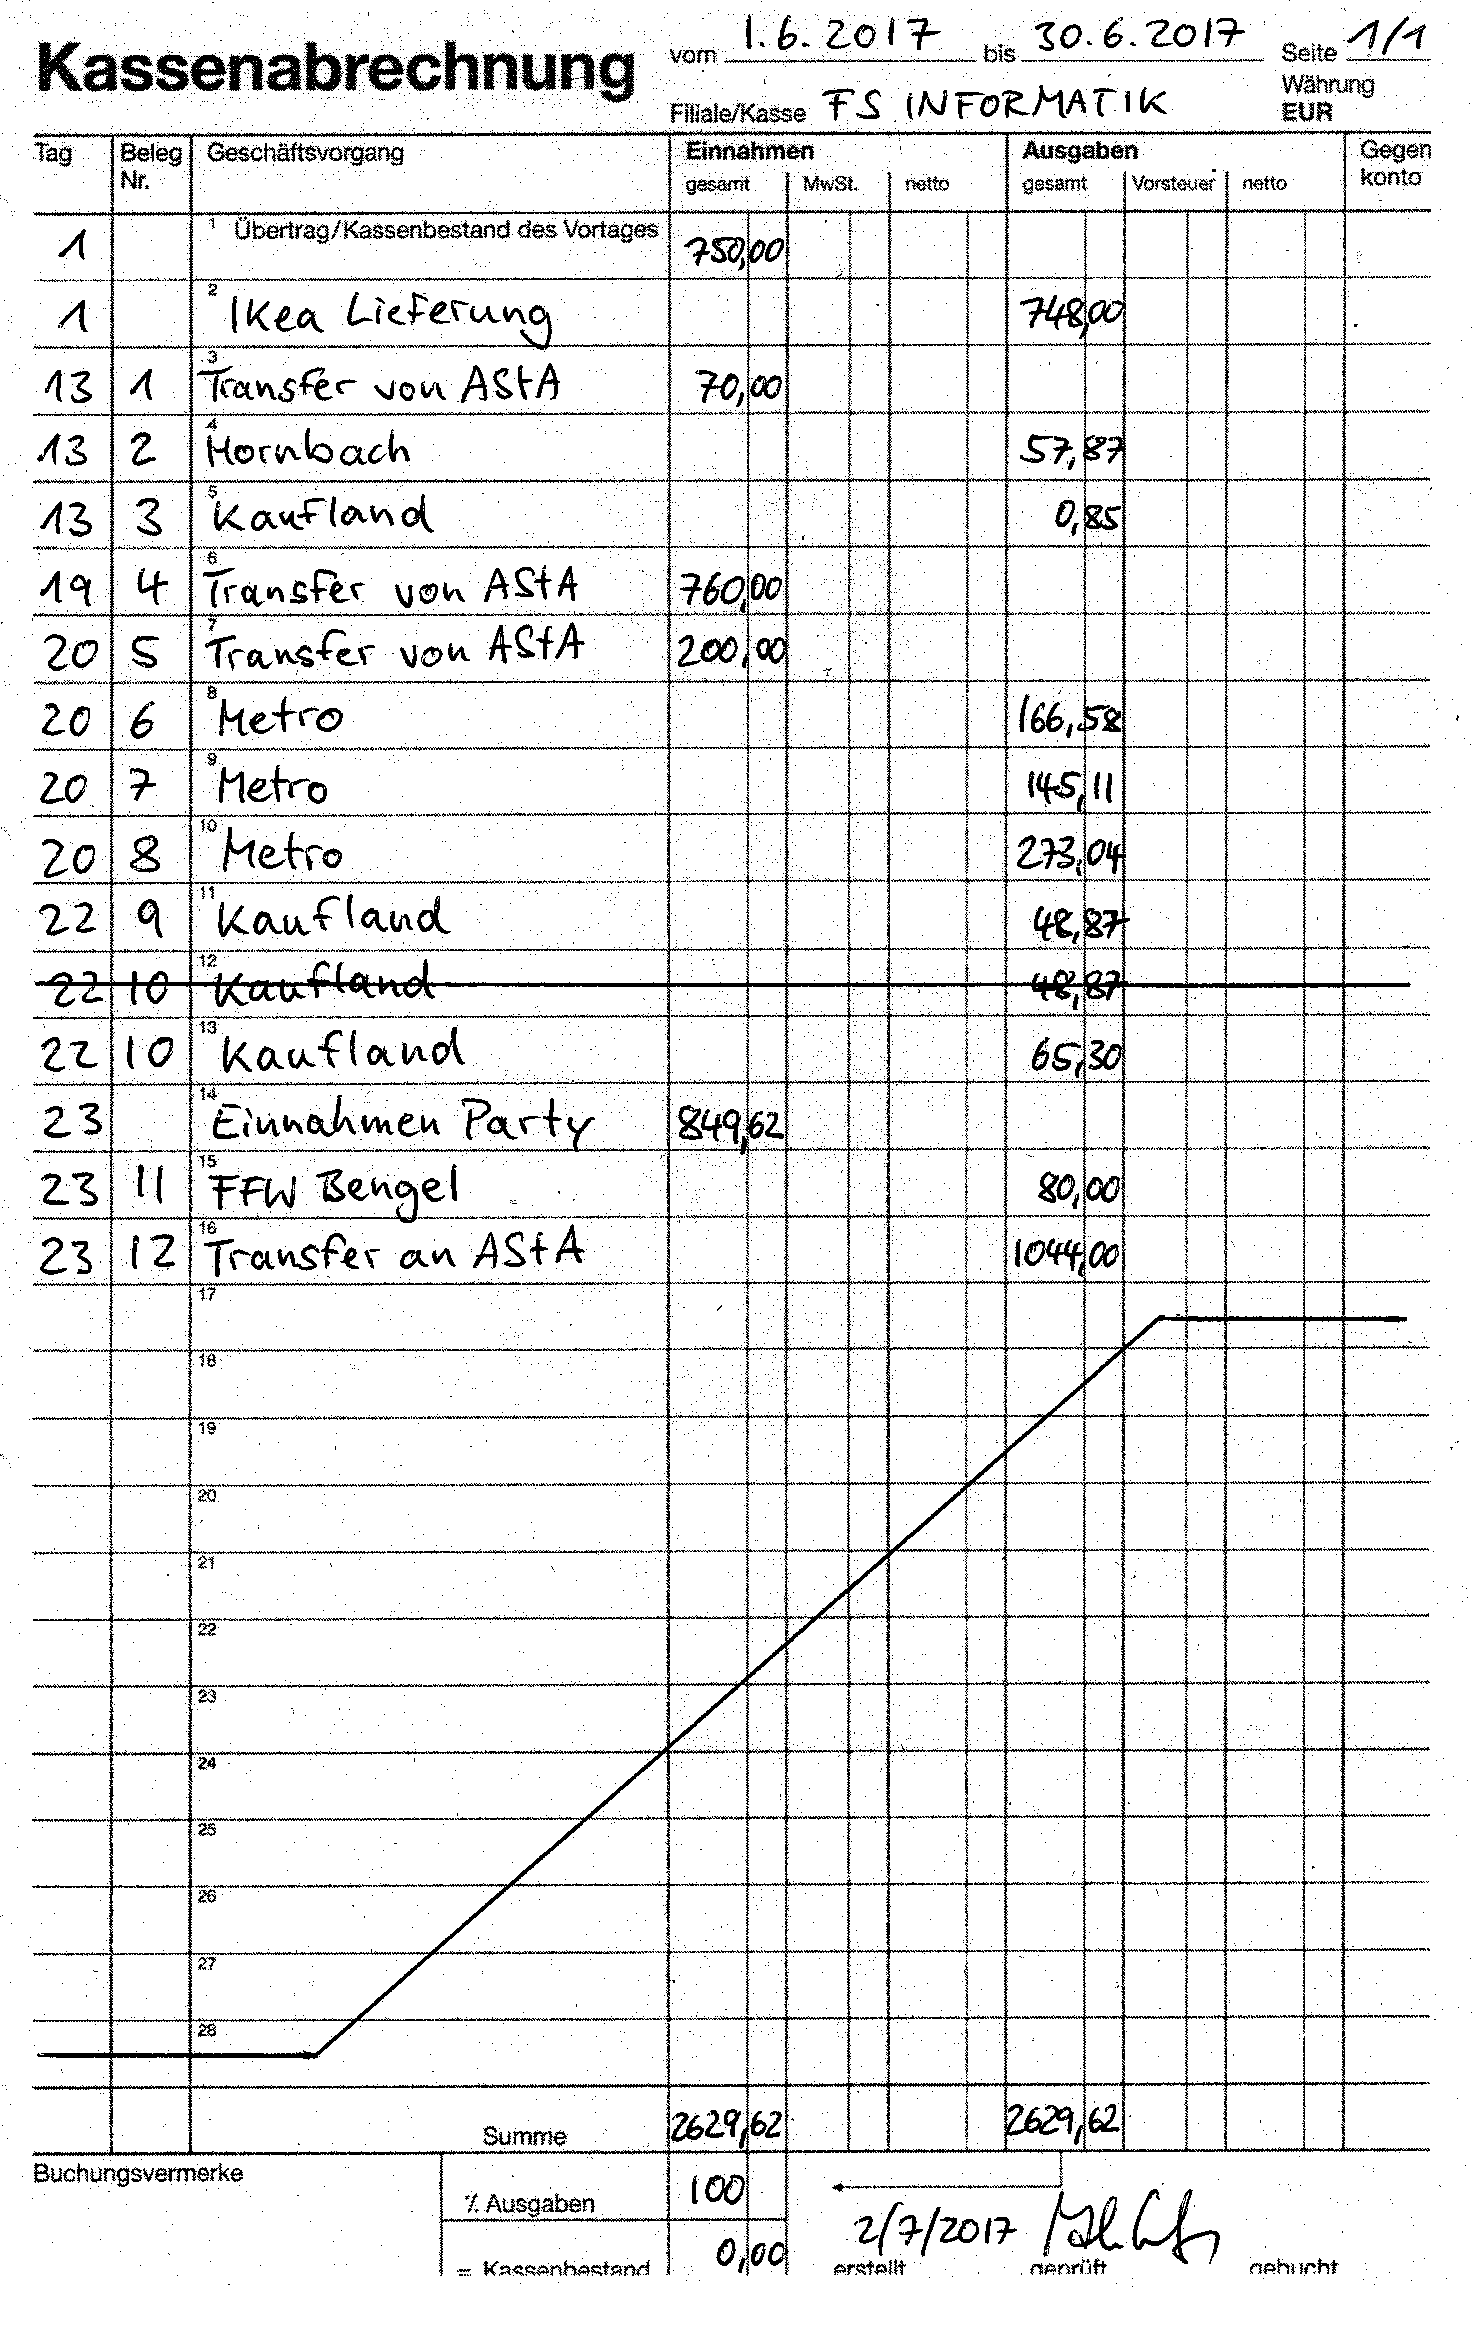 Kassenabrechnung vom 1.6.2017 bis 30.6.2017 Seite 1/1
Währung
Filiale/Kasse FS INFORMATIK EUR
Tag Beleg Nr. Geschäftsvorgang Einnahmen Ausgaben Gegen konto
gesamt MwSt. netto gesamt Vorsteuer netto
1 1 Übertrag/Kassenbestand des Vortages 750,00
1 2 Ikea Lieferung 748,00
13 1 3 Transfer von AStA 70,00
13 2 4 Hornbach 57,87
13 3 5 Kaufland 0,85
19 4 6 Transfer von AStA 760,00
20 5 7 Transfer von AStA 200,00
20 6 8 Metro 166,58
20 7 9 Metro 145,11
20 8 10 Metro 273,04
22 9 11 Kaufland 48,87
22 10 12 Kaufland 48,87
22 10 13 Kaufland 65,30
23 14 Einnahmen Party 849,62
23 11 15 FFW Bengel 80,00
23 12 16 Transfer an AStA 1044,00
17
18
19
20
21
22
23
24
25
26
27
28
Summe 2629,62 2629,62
Buchungsvermerke
٪ Ausgaben 100
2/7/2017
= Kassenbestand 0,00 erstellt geprüft gebucht